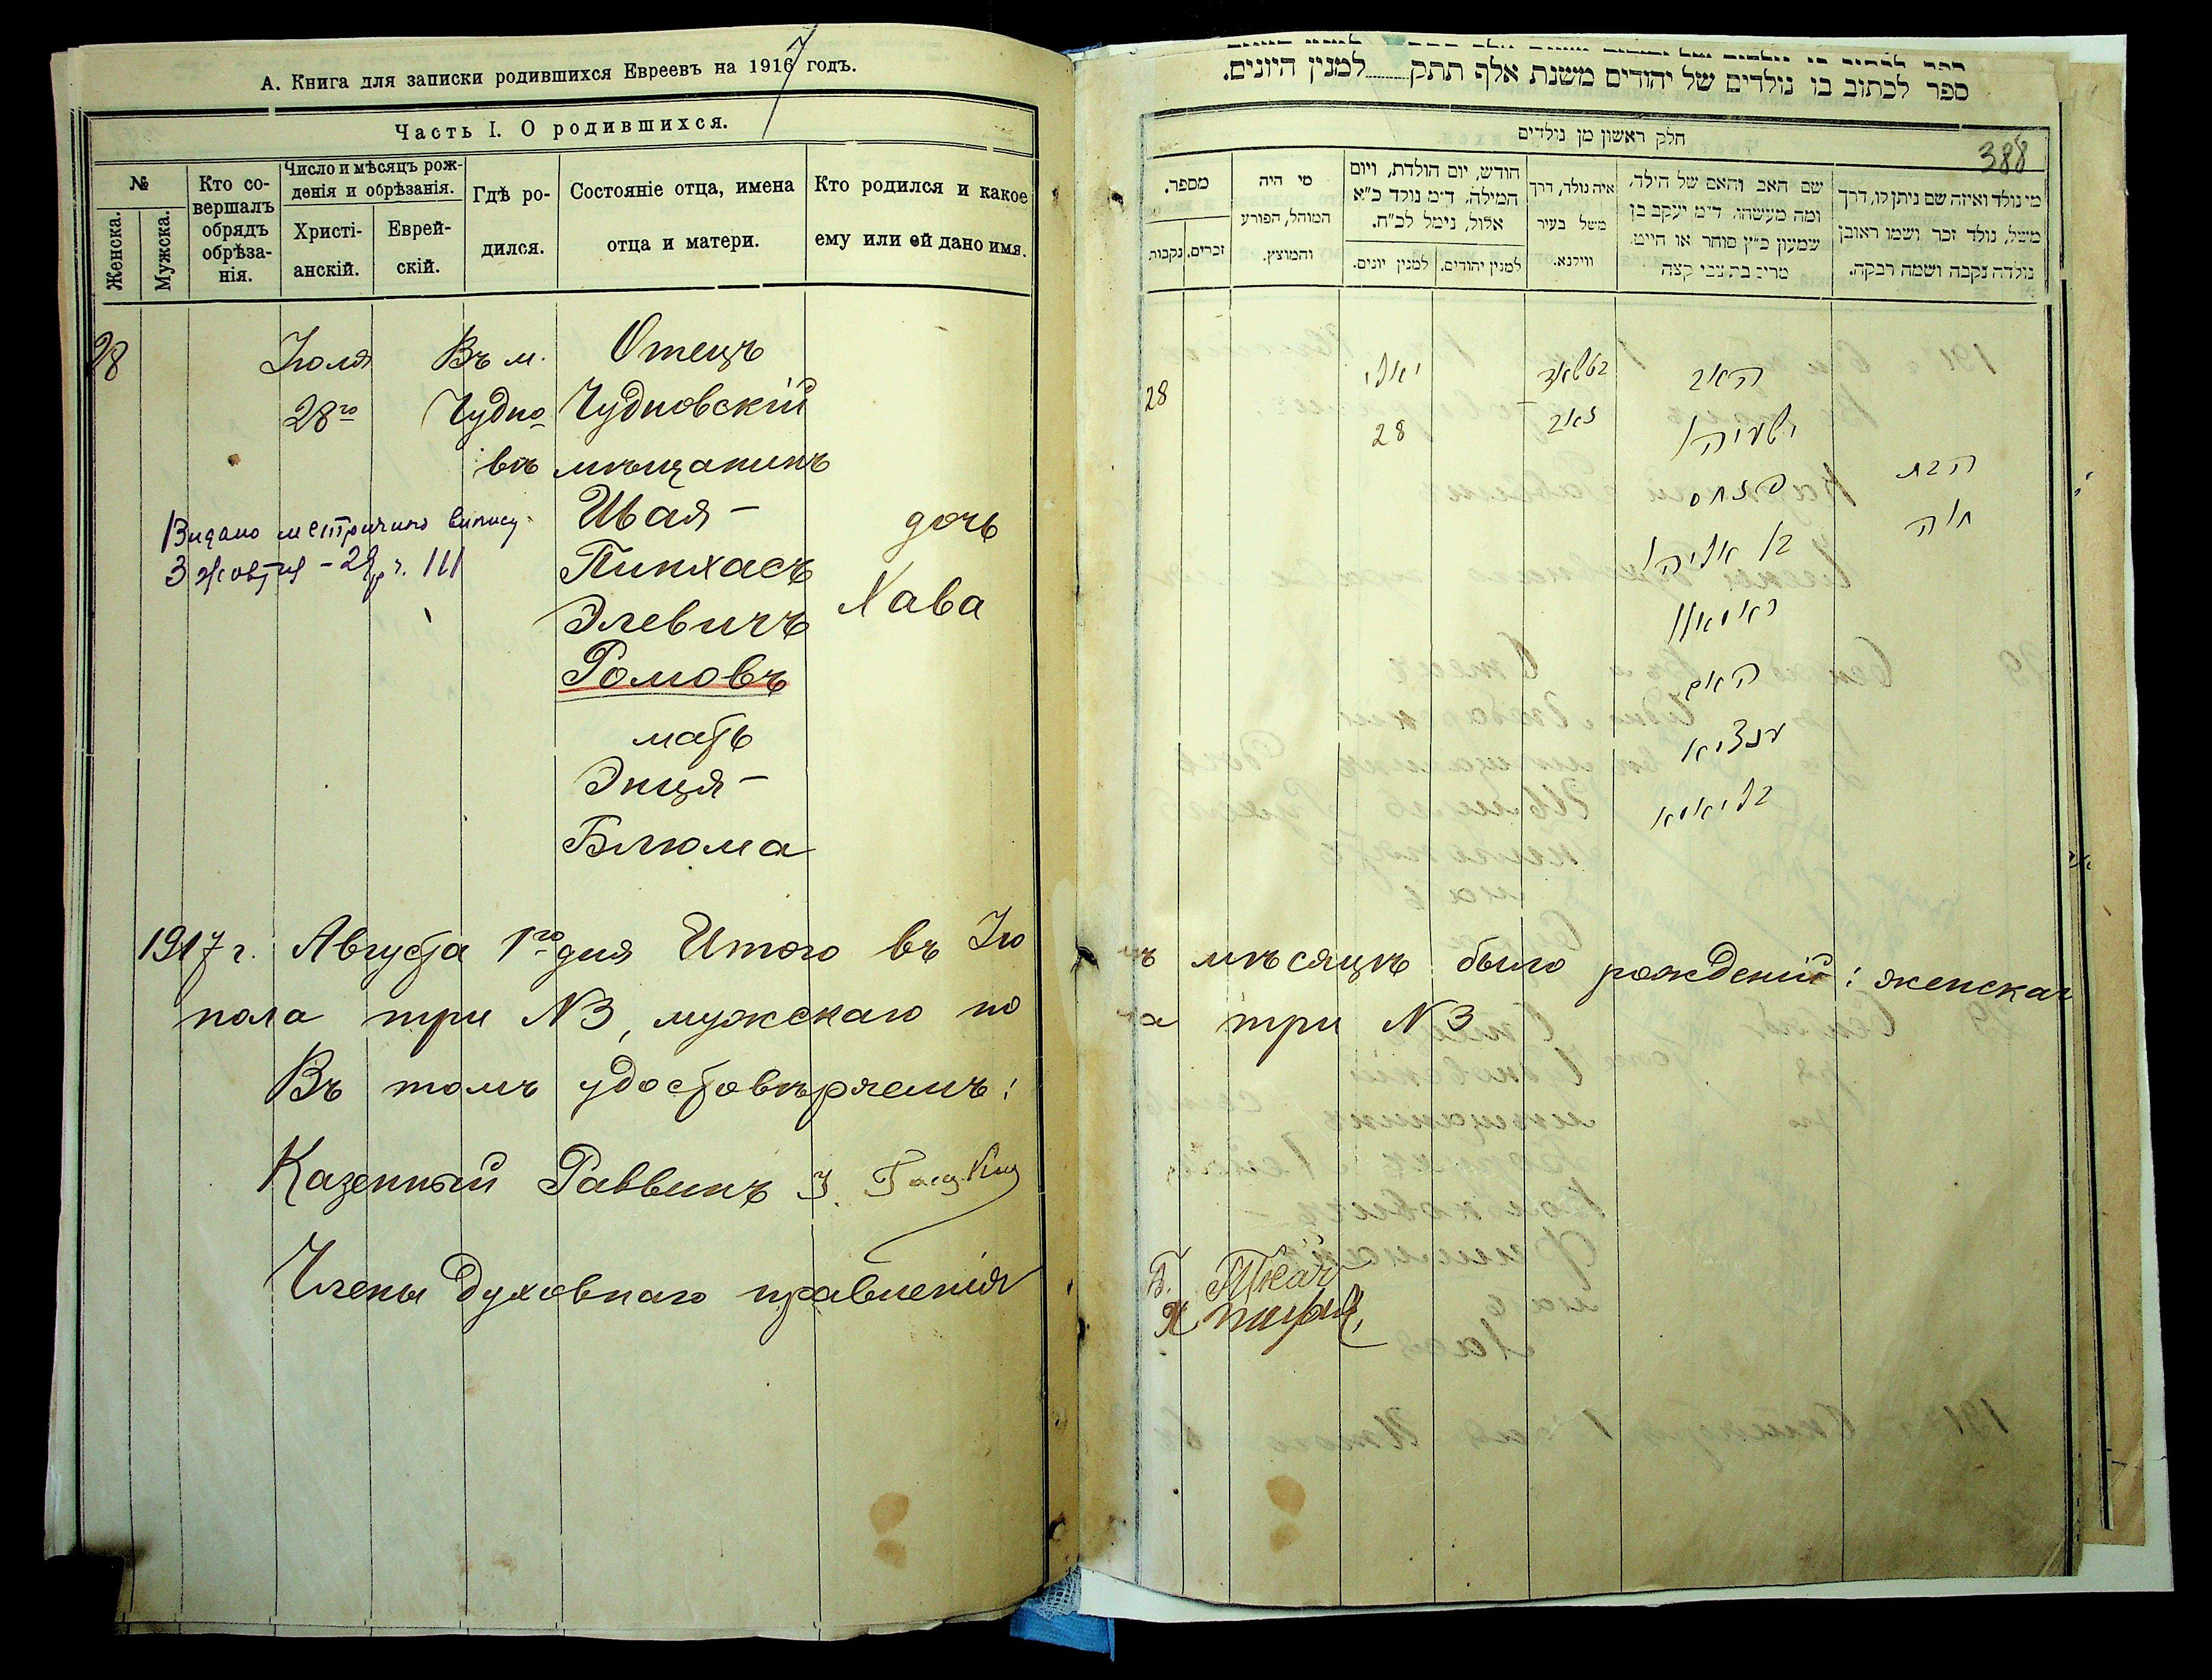 А. Книга для записки родившихся Евреевъ на 1917 годъ.
Часть I. О родившихся.
№
Женска.
Мужска.
Кто со-
вершалъ
обрядъ
обрѣза-
нія.
Число и мѣсяцъ рож-
денія и обрѣзанія.
Христі-
анскій.
Еврей-
скій.
Гдѣ ро-
дился.
Состояніе отца, имена
отца и матери.
Кто родился и какое
ему или ей дано имя.
28
Іюля
28го
Въ м.
Чудно
вѣ
Отецъ
Чудновскій
мѣщанинъ
Шая-
Пинхасъ
Элевичъ
Ромовъ
мать
Энця-
Блюма
дочь
Хава
Видано метричний випис
3 жовтня - 28 р. ч. 111
1917 г. Августа 1го дня Итого въ Ію
лѣ мѣсяцѣ было рожденій: женскаг
пола три №3, мужскаго по
ла три №3
Въ томъ удостовѣряемъ:
Казенный Раввинъ
Члены духовнаго правленія
Б. Ткачъ
ספר לכתוב בו נולדים של יהודים משנת אלף תתק למנין היונים.
388
חלק ראשון מן נולדים
מי נולד ואיזה שם ניתן לו, דרך
משל, נולד זכר ושמו ראובן
נולדה נקבה ושמה רבקה.
שם האב והאם של הילד,
ומה מעשהו. ד״מ יעקב בן
שמעון כ״ץ סוחר או חייט.
שרה בת צבי קצה
איה נולד, דרך
משל בעיר
ווילנא.
חודש, יום הולדת, ויום
המילה, ד״מ נולד כ״א
אלול, נימל לכ״ח.
למנין יהודים.
למנין יונים.
מי היה
המוהל, הפורע
והמוצץ.
מספר.
זכרים.
נקבות
28
יאלי
28
האב
ישעיהו
פנחס
בן אליהו
ראמאוו
האם
ענציא
בליאמא
הבת
חוה